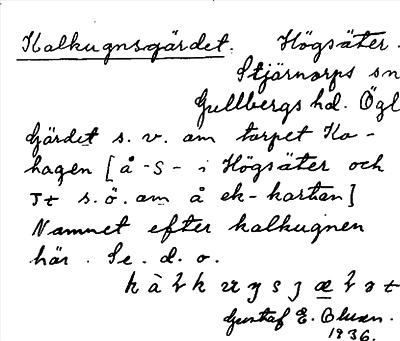 Kalkugnsgärdet. Högsäter.
Stjärnorps sn
Gullbergs hd. Ögl
Gärdet s. v. om torpet Ko-
hagen [å -S- i Högsäter och
st s. ö. om å ek-kartan]
Namnet efter kalkugnen
här. Se. d. o.
Gustaf E. Olsson.
1936.